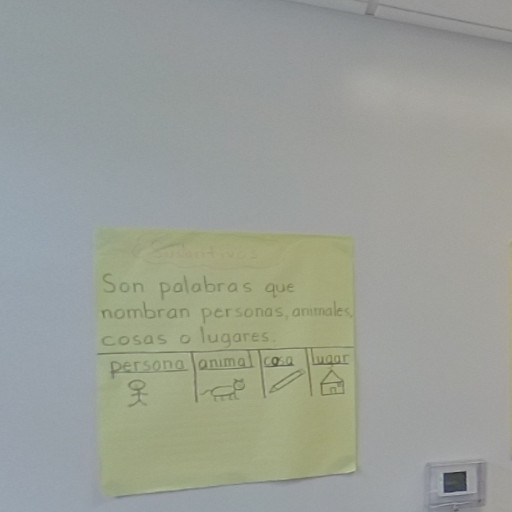 Sustantivos
Son palabras que
nombran personas, animales,
cosas o lugares.
persona animal cosa lugar